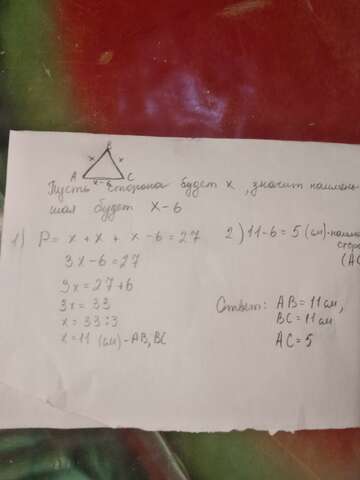 B
x x
A x-6 C
Пусть сторона будет x, значит наимень-
шая будет x-6
1) P= x + x + x - 6 = 27
3x - 6 = 27
3x = 27+6
3x = 33
x = 33:3
x = 11 (см) - AB, BC
2) 11-6 = 5 (см)-наиме
сторо
(AC
Ответ: AB = 11 см,
BC = 11 см
AC = 5